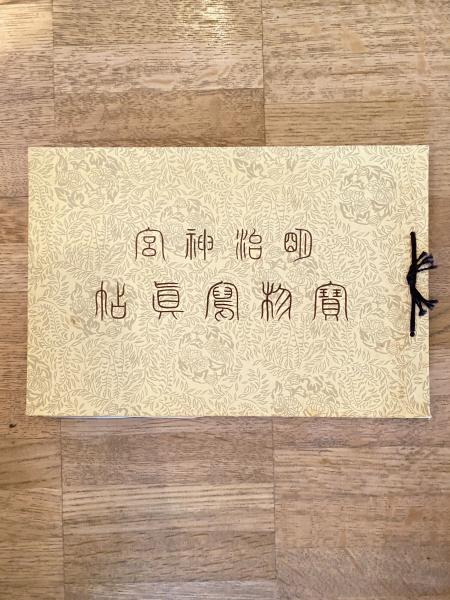 明治神宮
寶物寫眞帖